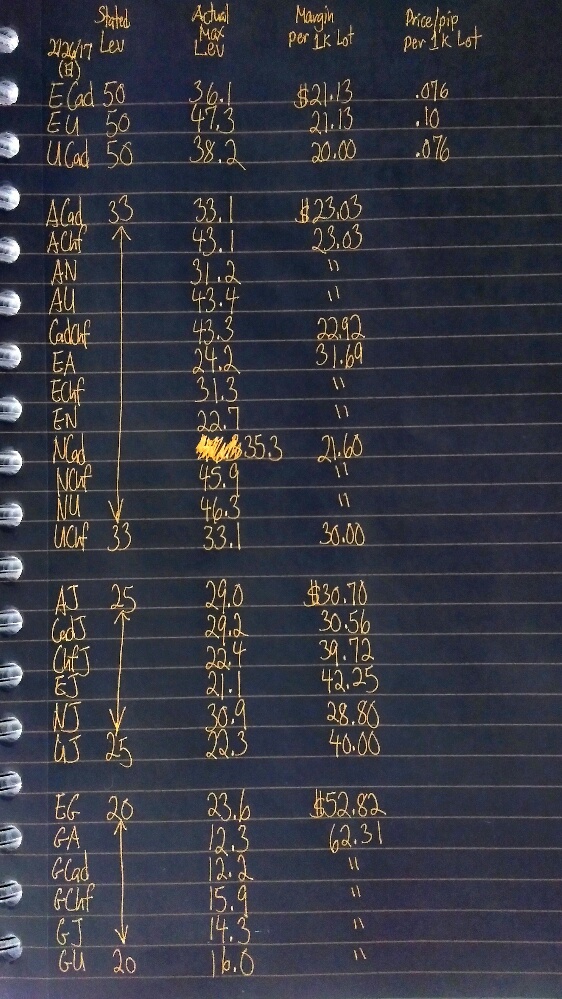 Stated Lev Actual Max Lev Margin per 1k Lot Price/pip per 1k Lot
2/26/17
ECad 50 36.1 $21.13 .076
EU 50 47.3 21.13 .10
UCad 50 38.2 20.00 .076
ACad 33 33.1 $23.03
AChf 43.1 23.03
AN 31.2 "
AU 43.4 "
CadChf 43.3 22.92
EA 24.2 31.69
EChf 31.3 "
EN 22.7 "
NCad 35.3 21.60
NChf 45.9 "
NU 46.3 "
UChf 33 33.1 30.00
AJ 25 29.0 $30.70
CadJ 29.2 30.56
ChfJ 22.4 39.72
EJ 21.1 42.25
NJ 30.9 28.80
UJ 25 22.3 40.00
EG 20 23.6 $52.82
GA 12.3 62.31
GCad 12.2 "
GChf 15.9 "
GJ 14.3 "
GU 20 16.0 "